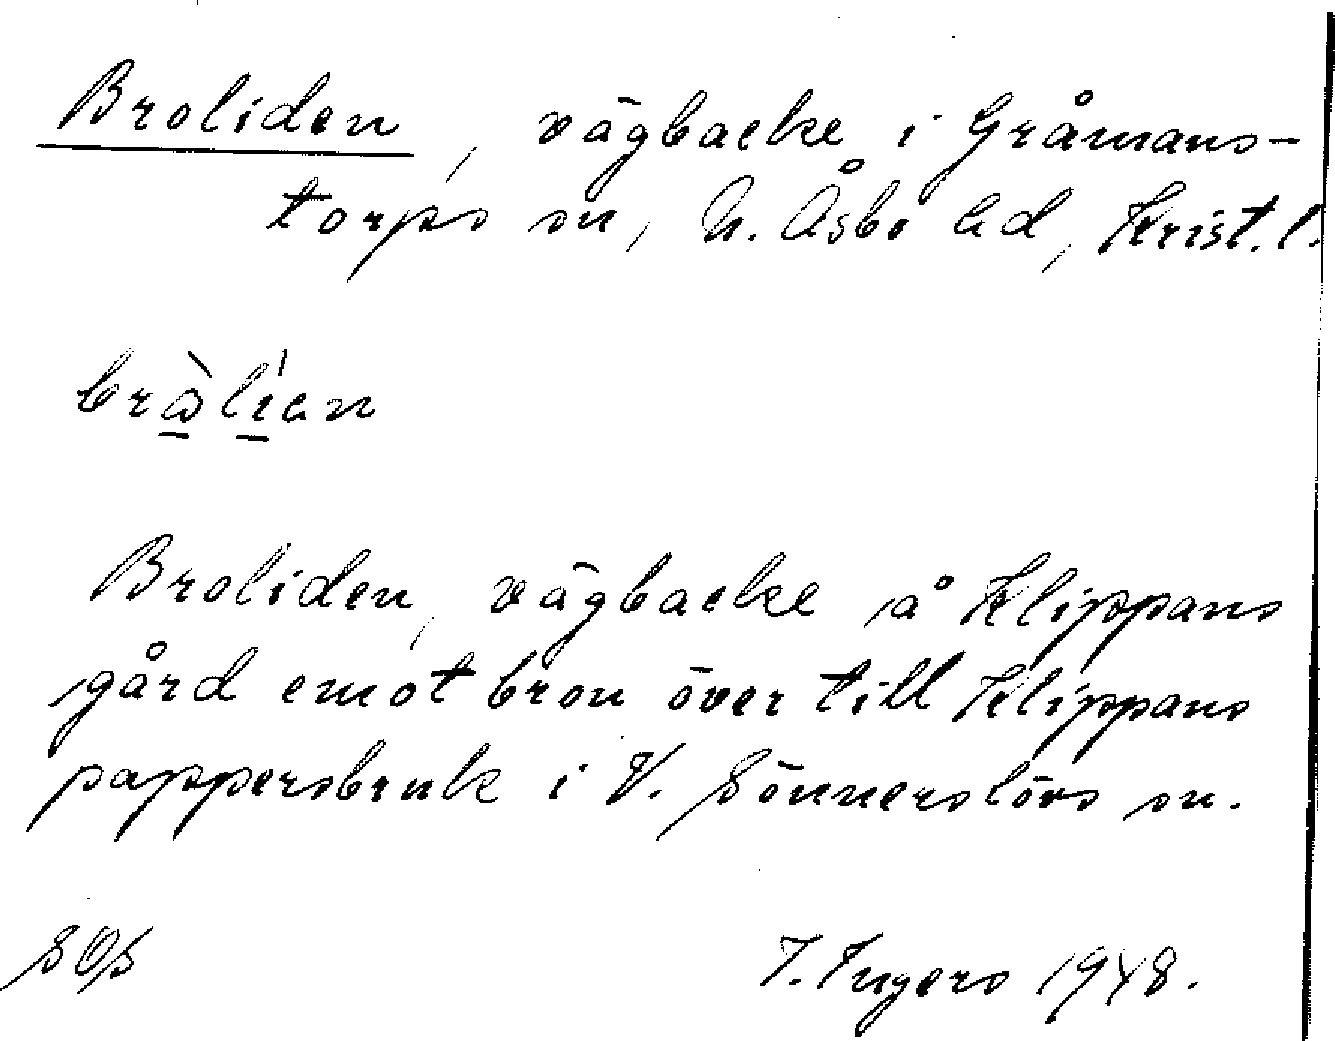 Broliden, vägbacke i Gråmans-
torps sn, N. Åsbo hd, Krist. l.
Broliden, vägbacke å Klippans
gård emot bron över till Klippans
pappersbruk i V. Sönnerslövs sn.
SOS I. Ingers 1948.